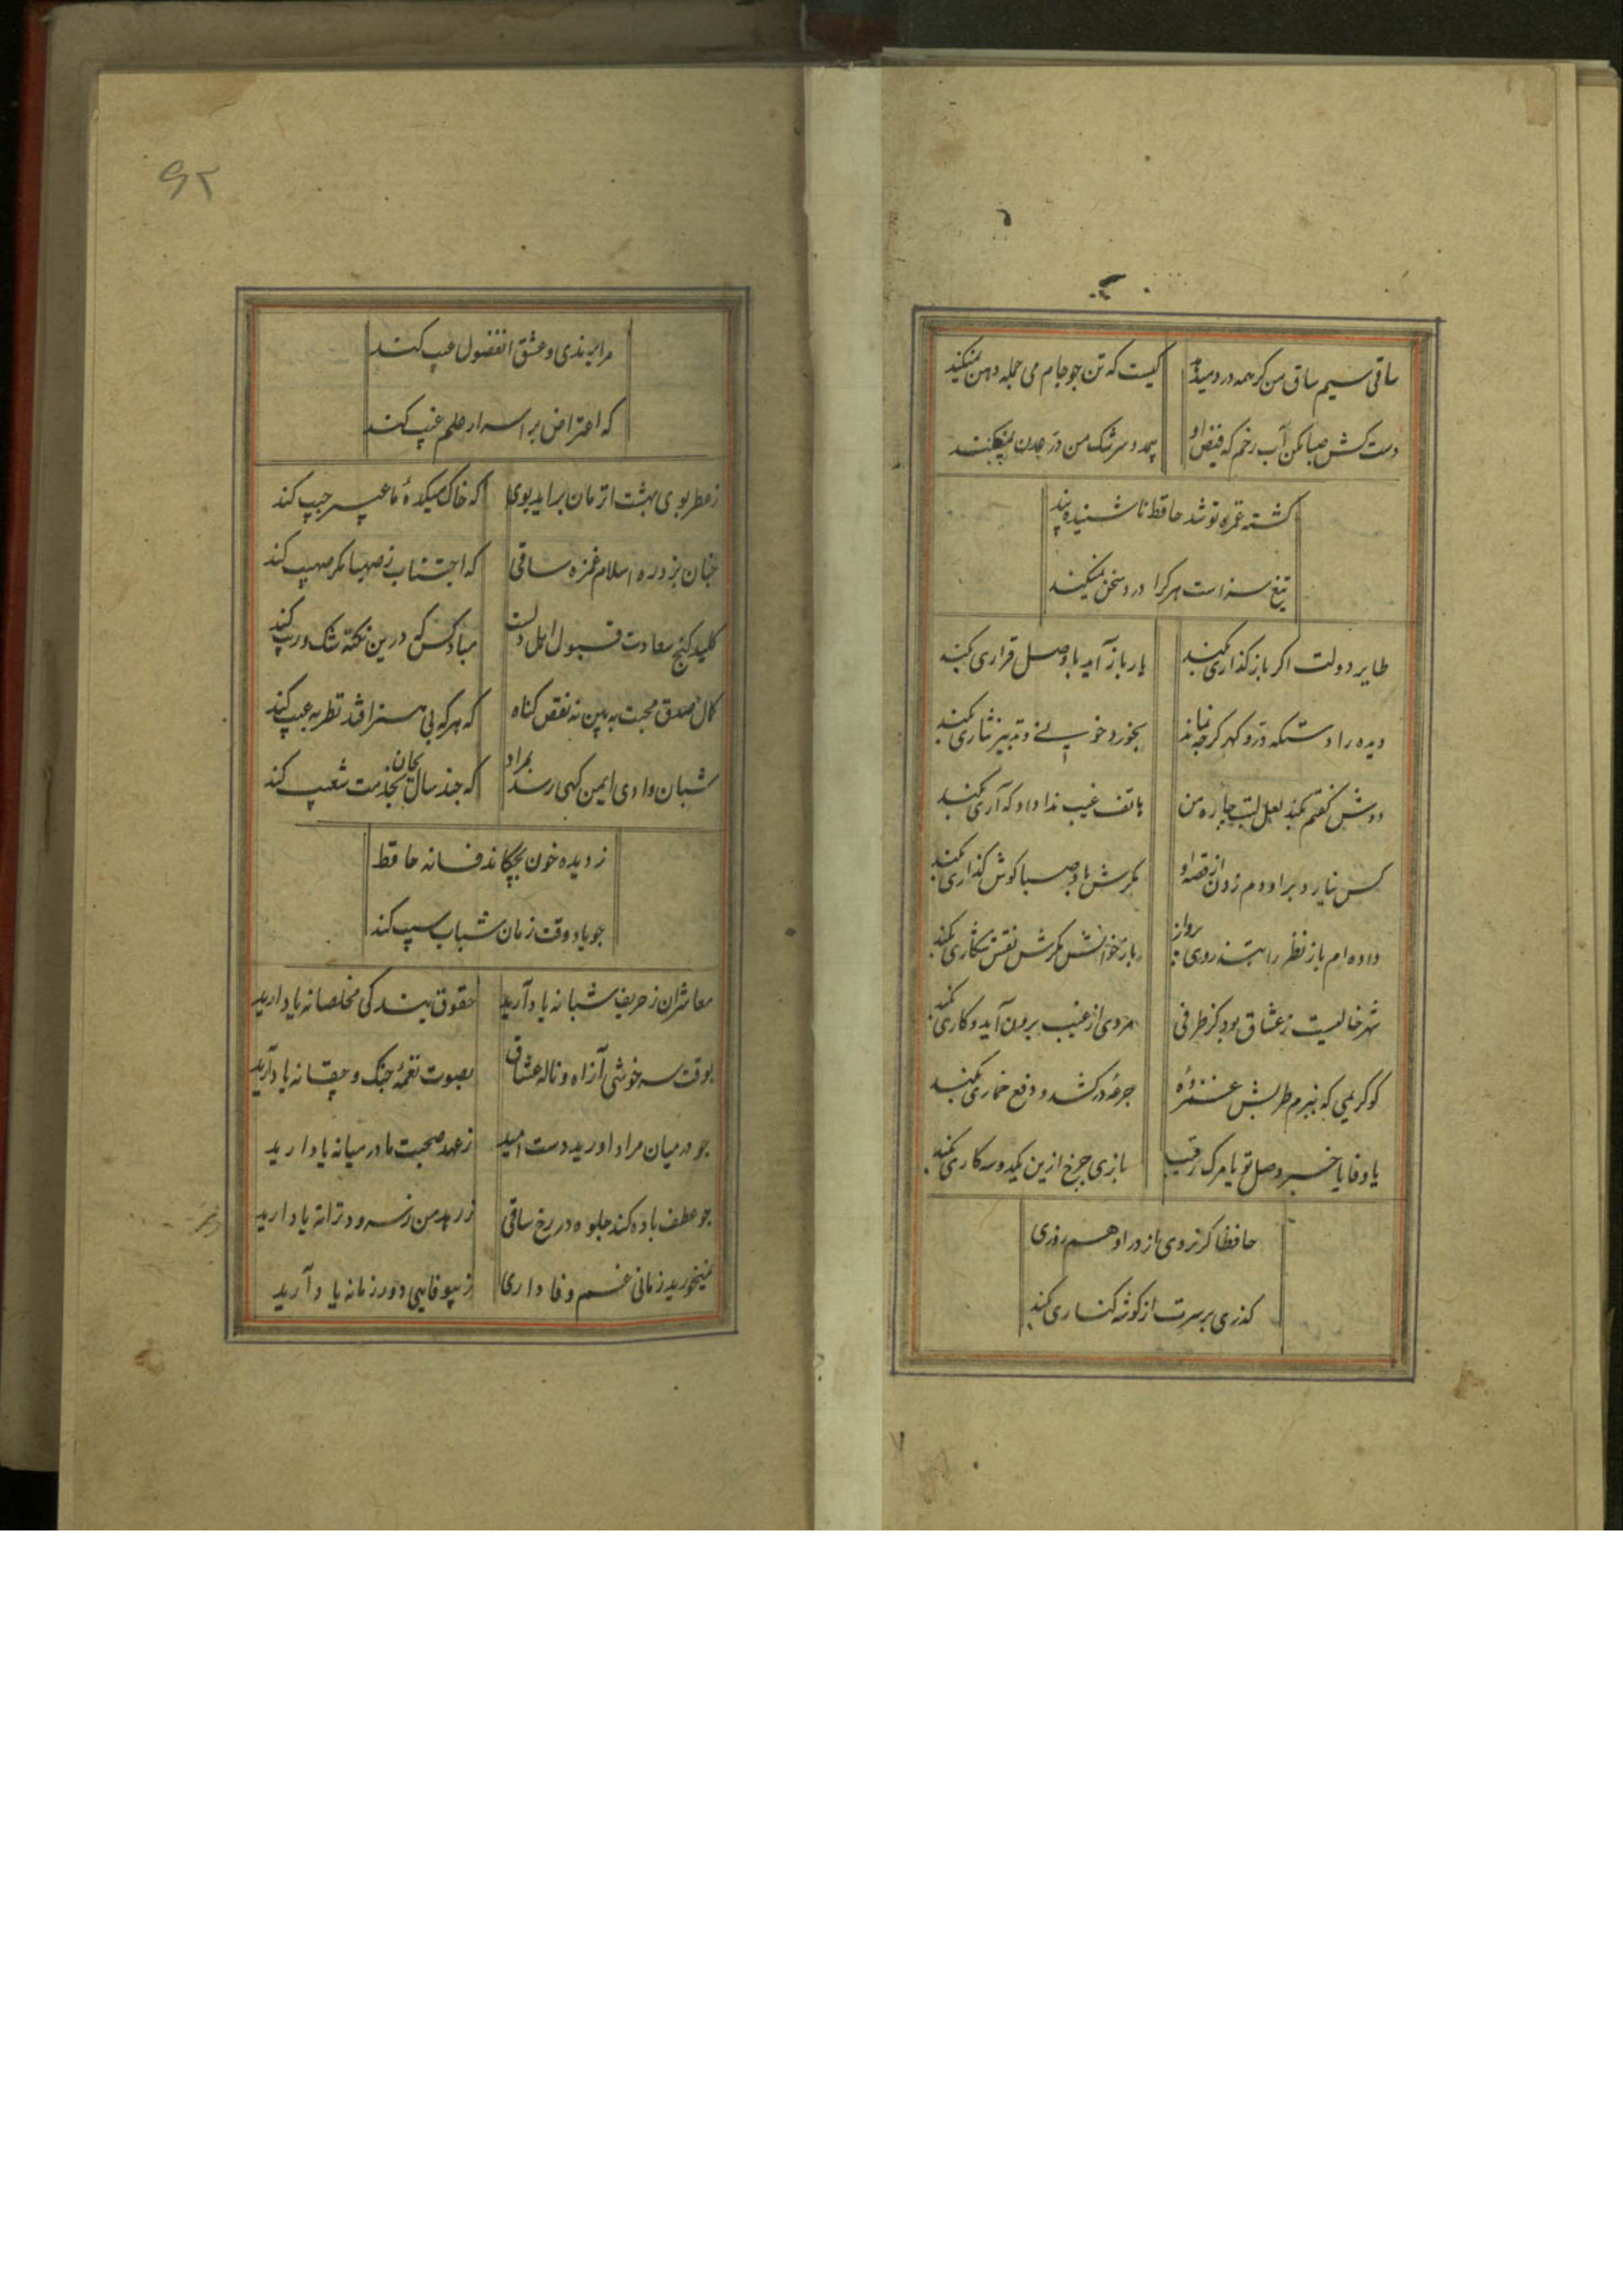 ساقی سیم ساق من کر همه درد میدهد کیست که تن جو جام می جمله دهن نمیکند
دست کش جفا مکن آب رخم که فیض او بیمدد سرشک من در عدن نمیکند
کشته غمزه تو شد حافظ ناشنیده پند
تیغ سزاست هر کرا درد سخن نمیکند
طایر دولت اکر باز کذاری بکند یار باز آید با وصل قراری بکند
دیده را دستکه در و کهر کرچه نماند بخورد خونی و تدبیر نثاری بکند
دوش کفتم بکند لعل لبت چاره من هاتف غیب ندا داد که آری بکند
کس نیارد بر او دم زدن از قصه او مکرش باد صبا کوش کذاری بکند
داده ام باز نظر را بتذروی پرواز باز خواندش مکرش نقش شکاری بکند
شهر خالیست ز عشاق بود کز طرفی مردی از غیب برون آید و کاری بکند
کو کریمی که ز بزم طربش غمزده جرعه درکشد و دفع خماری بکند
یا وفا یا خبر وصل تو یا مرک رقیب بازی چرخ ازین یکدوسه کاری بکند
حافظا کر نروی از در او هم روزی
کذری برسرت از کوشه کناری بکند
۹۲
مرا برندی و عشق آنفضول عیب کند
که اعتراض بر اسرار علم غیب کند
ز عطر بوی بهشت انزمان براید بوی که خاک میکده ما عبیر جیب کند
چنان بزد ره اسلام غمزه ساقی که اجتناب ز صهبا مکر صهیب کند
کلید کنج سعادت قبول اهل دلست مباد کس که درین نکته شک و ریب کند
کمال صدق محبت به بین نه نقص کناه که هر که بی هنر افتد نظر به عیب کند
شبان وادی ایمن کهی رسد بمراد که جند سال بجان خدمت شعیب کند
ز دیده خون بچکاند فسانه حافظ
جو یاد وقت زمان شباب و شیب کند
معاشران ز حریف شبانه یاد آرید حقوق بندکی مخلصانه یاد آرید
بوقت سرخوشی از آه و ناله عشاق بصوت نغمه جنک و جغانه یاد آرید
جو در میان مراد اورید دست امید ز عهد صحبت ما در میانه یاد ارید
جو عطف باده کند جلوه در رخ ساقی ز من سرود و ترانه یاد ارید
نمیخورید زمانی غم وفاداری ز بیوفایی دور زمانه یاد آرید